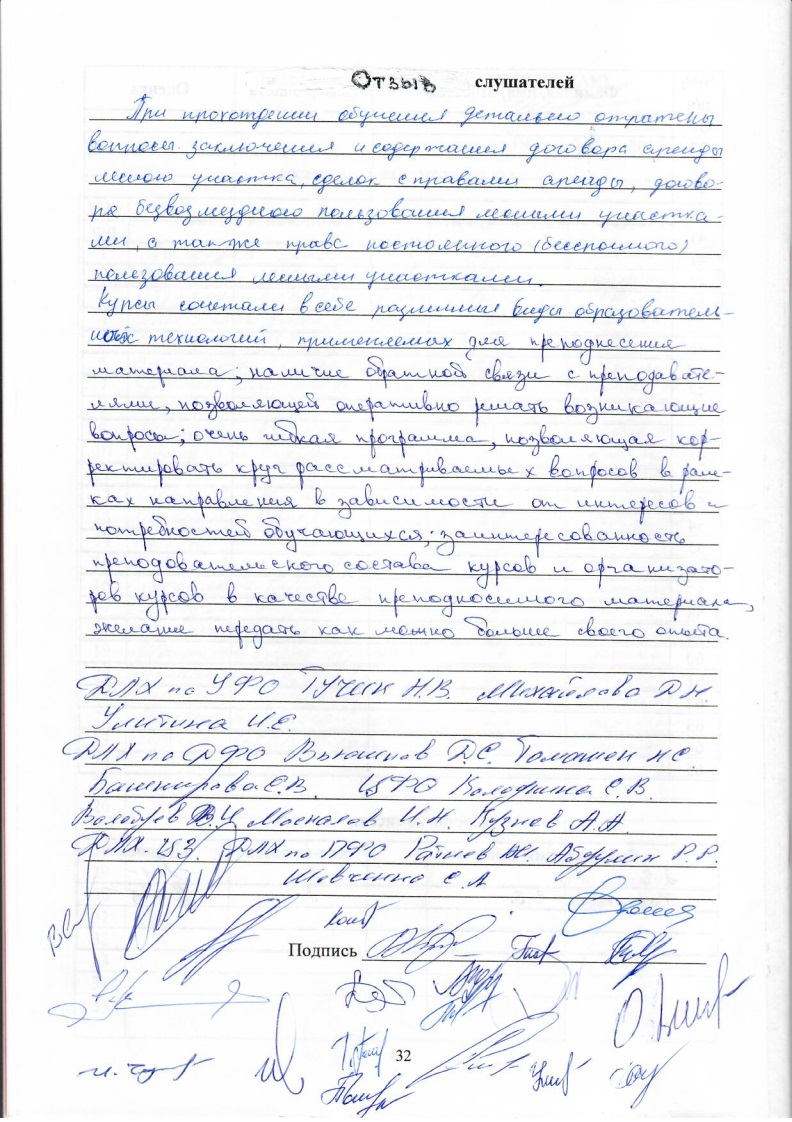 Отзыв слушателей
При прохождении обучения детально отражены
вопросы заключения и содержания договора аренды
лесного участка, сделок с правами аренды, догово-
ра безвозмездного пользования лесными участка-
ми, а также права постоянного (бессрочного)
пользования лесными участками.
Курсы сочетали в себе различные виды образователь-
ных технологий, применяемых для преподнесения
материала; наличие обратной связи с преподавате-
лями, позволяющей оперативно решать возникающие
вопросы; очень гибкая программа, позволяющая кор-
ректировать круг рассматриваемых вопросов в рам-
ках направления в зависимости от интересов и
потребностей обучающихся; заинтересованность
преподовательского состава курсов и организато-
ров курсов в качестве преподносимого материала,
желание передать как можно больше своего опыта.
ДЛХ по УФО Н.В. Михайлова
Улитина И.Е.
ДЛХ по ДФО Д.С.
Башкирова Е.В. ЦФО С.В.
Москалов И.Н. А.А.
ДЛХ ДЛХ по ПФО Р.Р.
Шевченко С.А
Подпись
32